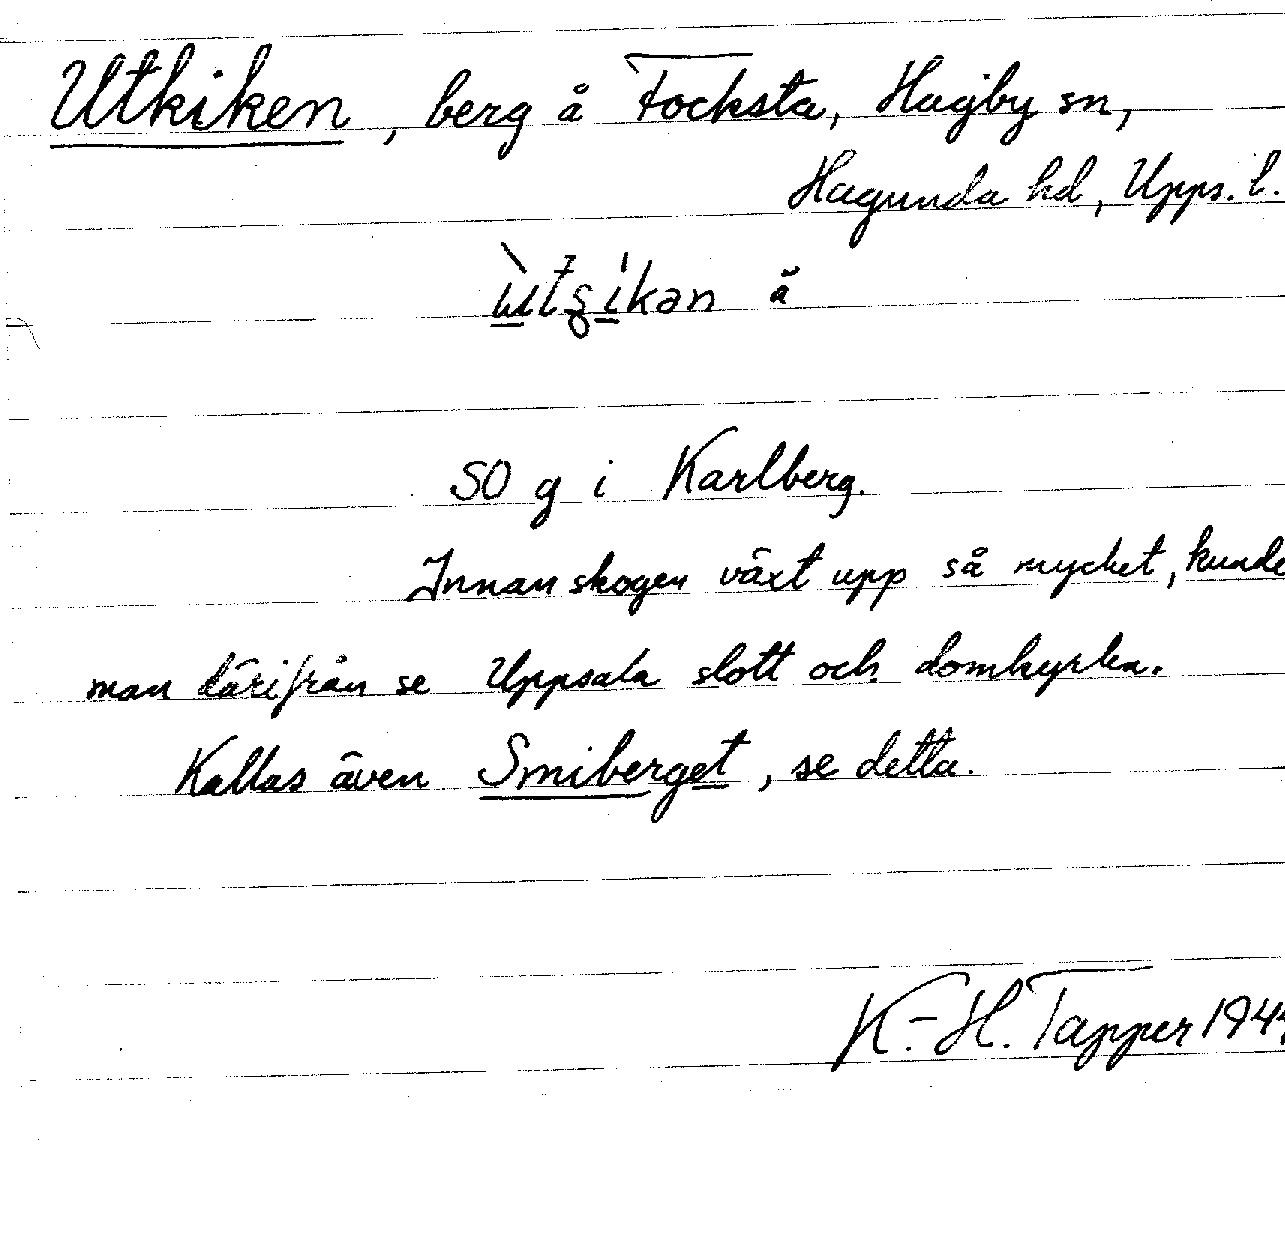 Utkiken, berg å Focksta, Hagby sn,
Hagunda hd, Upps. l.
ùtʂíkən ä
SO g i Karlberg.
Innan skogen växt upp så mycket, kunde
man därifrån se Uppsala slott och domkyrka.
Kallas även Smiberget, se detta.
K.-H. Tapper 1944